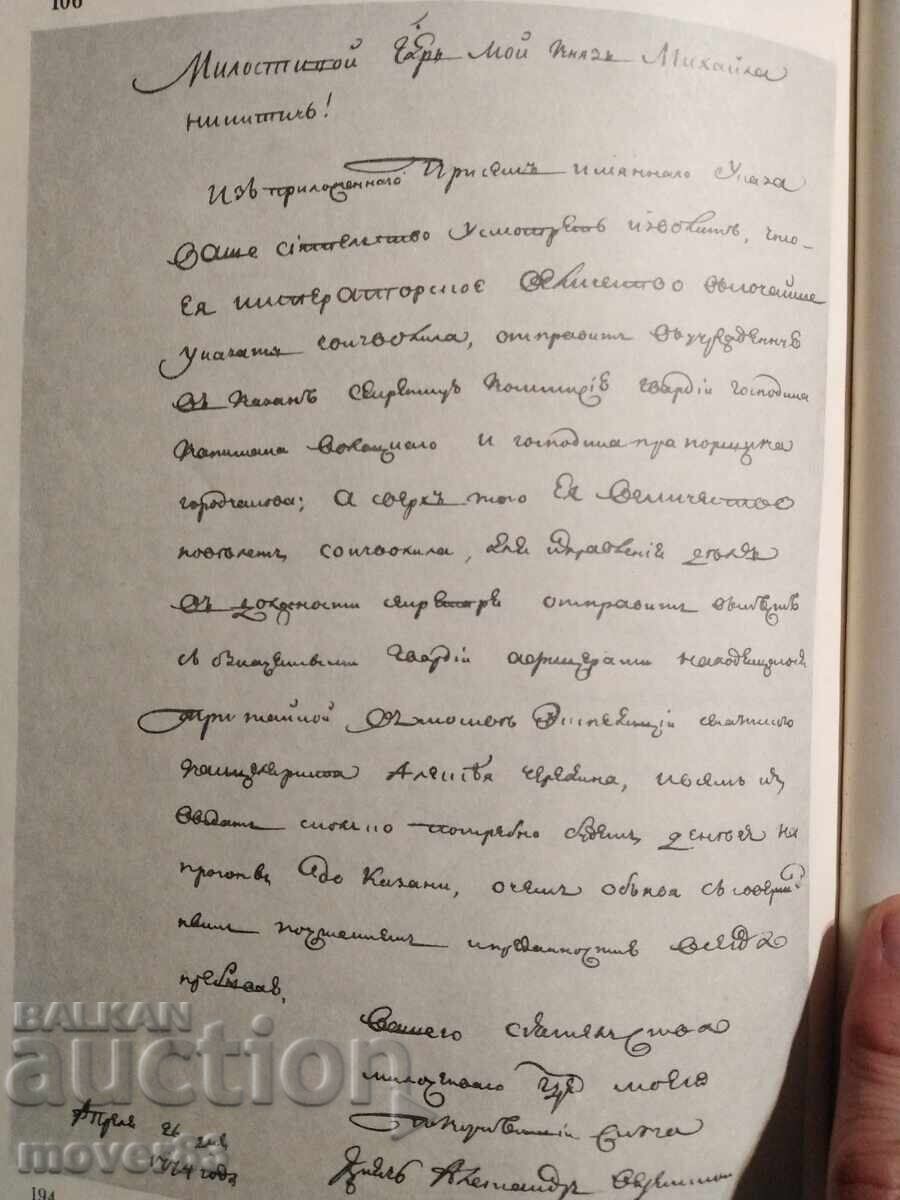 106
Милостивой Гдрь мой князь Михайла
никитичь!
Изъ приложеннаго при семъ имяннаго указа
ваше сиятельство усмотреть изволитъ, что
Ея императорское величество высочайше
указать соизволила, отправить въ учрежденные
въ Казанъ секретную комисию гвардии господина
капитана и господина прапорщика
горчакова; а сверхъ того Ея величество
повелеть соизволила, для исправления делъ
въ должности секретаря отправить вместе
съ гвардии афицерами находящагося
при тайной експедиции сенатского
канцеляриста Алексея
сколько потребно будетъ денегъ на
прогоны до Казани, о чемъ объявя съ совер
нымъ почтениемъ и преданностию всегда
пребываю,
вашего сиятельства
милостиваго Гдря моего
покорнейший слуга
Князь Александръ
Апреля 26 дня
1774 года
194
BALKAN
auction
mover83